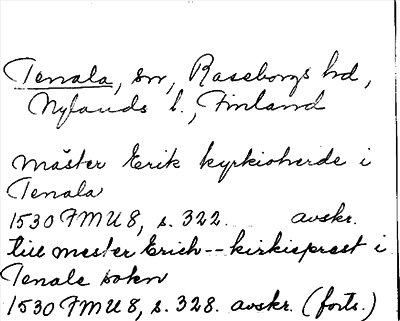 Tenala, sn, Raseborgs hd,
Nylands l., Finland
mäster Erik kyrkioherde i
Tenala
1530 FMU 8, s. 322. avskr.
till mester Erich -- kirkieprest i
Tenale sokn
1530 FMU 8, s. 328. avskr. (forts.)